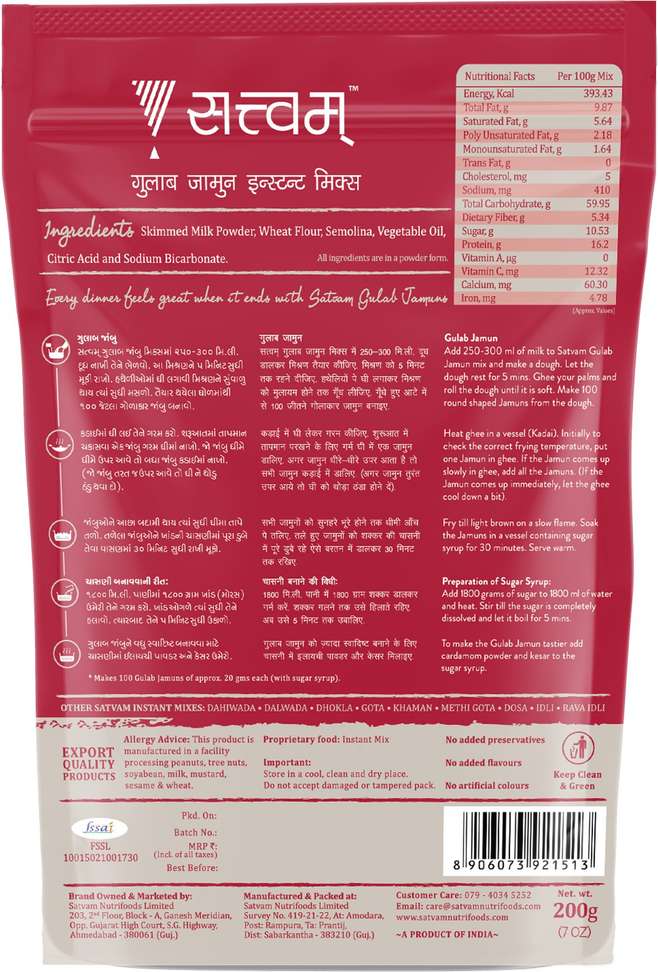 सत्त्वम् ™
गुलाब जामुन इन्स्टन्ट मिक्स
Ingredients Skimmed Milk Powder, Wheat Flour, Semolina, Vegetable Oil,
Citric Acid and Sodium Bicarbonate.
All ingredients are in a powder form.
Every dinner feels great when it ends with Satvam Gulab Jamuns
Nutritional Facts Per 100g Mix
Energy, Kcal 393.43
Total Fat, g 9.87
Saturated Fat, g 5.64
Poly Unsaturated Fat, g 2.18
Monounsaturated Fat, g 1.64
Trans Fat, g 0
Cholesterol, mg 5
Sodium, mg 410
Total Carbohydrate, g 59.95
Dietary Fiber, g 5.34
Sugar, g 10.53
Protein, g 16.2
Vitamin A, µg 0
Vitamin C, mg 12.32
Calcium, mg 60.30
Iron, mg 4.78
(Approx. Values)
ગુલાબ જાંબુ
સત્વમ્ ગુલાબ જાંબુ મિક્સમાં ૨૫૦-૩૦૦ મિ.લી.
દૂધ નાખી તેને ભેળવો. આ મિશ્રણને ૫ મિનિટ સુધી
મૂકી રાખો. હથેળીઓમાં ઘી લગાવી મિશ્રણને સુંવાળુ
થાય ત્યાં સુધી મસળો. તૈયાર થયેલા ઘોળમાંથી
૧૦૦ જેટલાં ગોળાકાર જાંબુ બનાવો.
કડાઈમાં ઘી લઈ તેને ગરમ કરો. શરૂઆતમાં તાપમાન
ચકાસવા એક જાંબુ ગરમ ઘીમાં નાખો. જો જાંબુ ધીમે
ધીમે ઉપર આવે તો બધા જાંબુ કડાઈમાં નાખો.
(જો જાંબુ તરત જ ઉપર આવે તો ઘી ને થોડુ
ઠંડુ થવા દો).
જાંબુઓને આછા બદામી થાય ત્યાં સુધી ધીમા તાપે
તળો. તળેલા જાંબુઓને ખાંડની ચાસણીમાં પૂરા ડુબે
તેવા વાસણમાં ૩૦ મિનિટ સુધી રાખી મૂકો.
ચાસણી બનાવવાની રીત:
૧૮૦૦ મિ.લી. પાણીમાં ૧૮૦૦ ગ્રામ ખાંડ (મોરસ)
ઉમેરી તેને ગરમ કરો. ખાંડ ઓગળે ત્યાં સુધી તેને
હલાવો. ત્યારબાદ તેને ૫ મિનિટ સુધી ઉકાળો.
ગુલાબ જાંબુને વધુ સ્વાદિષ્ટ બનાવવા માટે
ચાસણીમાં ઈલાયચી પાવડર અને કેસર ઉમેરો.
गुलाब जामुन
सत्वम् गुलाब जामुन मिक्स में 250–300 मि.ली. दूध
डालकर मिश्रण तैयार कीजिए. मिश्रण को 5 मिनट
तक रहने दीजिए. हथेलियों पे घी लगाकर मिश्रण
को मुलायम होने तक गूँथ लीजिए. गूँथे हुए आटे में
से 100 जीतने गोलाकार जामुन बनाइए.
कड़ाई में घी लेकर गरम कीजिए. शुरूआत में
तापमान परखने के लिए गर्म घी में एक जामुन
डालिए. अगर जामुन धीरे-धीरे उपर आता है तो
सभी जामुन कड़ाई में डालिए. (अगर जामुन तुरंत
उपर आये तो घी को थोड़ा ठंडा होने दें).
सभी जामुनों को सुनहरे भूरे होने तक धीमी आँच
पे तलिए. तले हुए जामुनों को शक्कर की चासनी
में पूरे डुबे रहे ऐसे बरतन में डालकर 30 मिनट
तक रखिए.
चासनी बनाने की विधी:
1800 मि.ली. पानी में 1800 ग्राम शक्कर डालकर
गर्म करें. शक्कर गलने तक उसे हिलाते रहिए.
अब उसे 5 मिनट तक उबालिए.
गुलाब जामुन को ज्यादा स्वादिष्ट बनाने के लिए
चासनी में इलायची पावडर और केसर मिलाइए.
Gulab Jamun
Add 250-300 ml of milk to Satvam Gulab
Jamun mix and make a dough. Let the
dough rest for 5 mins. Ghee your palms and
roll the dough until it is soft. Make 100
round shaped Jamuns from the dough.
Heat ghee in a vessel (Kadai). Initially to
check the correct frying temperature, put
one Jamun in ghee. If the Jamun comes up
slowly in ghee, add all the Jamuns. (If the
Jamun comes up immediately, let the ghee
cool down a bit).
Fry till light brown on a slow flame. Soak
the Jamuns in a vessel containing sugar
syrup for 30 minutes. Serve warm.
Preparation of Sugar Syrup:
Add 1800 grams of sugar to 1800 ml of water
and heat. Stir till the sugar is completely
dissolved and let it boil for 5 mins.
To make the Gulab Jamun tastier add
cardamom powder and kesar to the
sugar syrup.
* Makes 100 Gulab Jamuns of approx. 20 gms each (with sugar syrup).
OTHER SATVAM INSTANT MIXES: DAHIWADA • DALWADA • DHOKLA • GOTA • KHAMAN • METHI GOTA • DOSA • IDLI • RAVA IDLI
EXPORT
QUALITY
PRODUCTS
Allergy Advice: This product is
manufactured in a facility
processing peanuts, tree nuts,
soyabean, milk, mustard,
sesame & wheat.
Proprietary food: Instant Mix
Important:
Store in a cool, clean and dry place.
Do not accept damaged or tampered pack.
No added preservatives
No added flavours
No artificial colours
Keep Clean
& Green
fssai
FSSL
10015021001730
Pkd. On:
Batch No.:
MRP ₹:
(Incl. of all taxes)
Best Before:
8 906073 921513
Brand Owned & Marketed by:
Satvam Nutrifoods Limited
203, 2nd Floor, Block - A, Ganesh Meridian,
Opp. Gujarat High Court, S.G. Highway,
Ahmedabad - 380061 (Guj.)
Manufactured & Packed at:
Satvam Nutrifoods Limited
Survey No. 419-21-22, At: Amodara,
Post: Rampura, Ta: Prantij,
Dist: Sabarkantha - 383210 (Guj.)
Customer Care: 079 - 4034 5252
Email: care@satvamnutrifoods.com
www.satvamnutrifoods.com
~A PRODUCT OF INDIA~
Net. wt.
200g
(7 OZ)